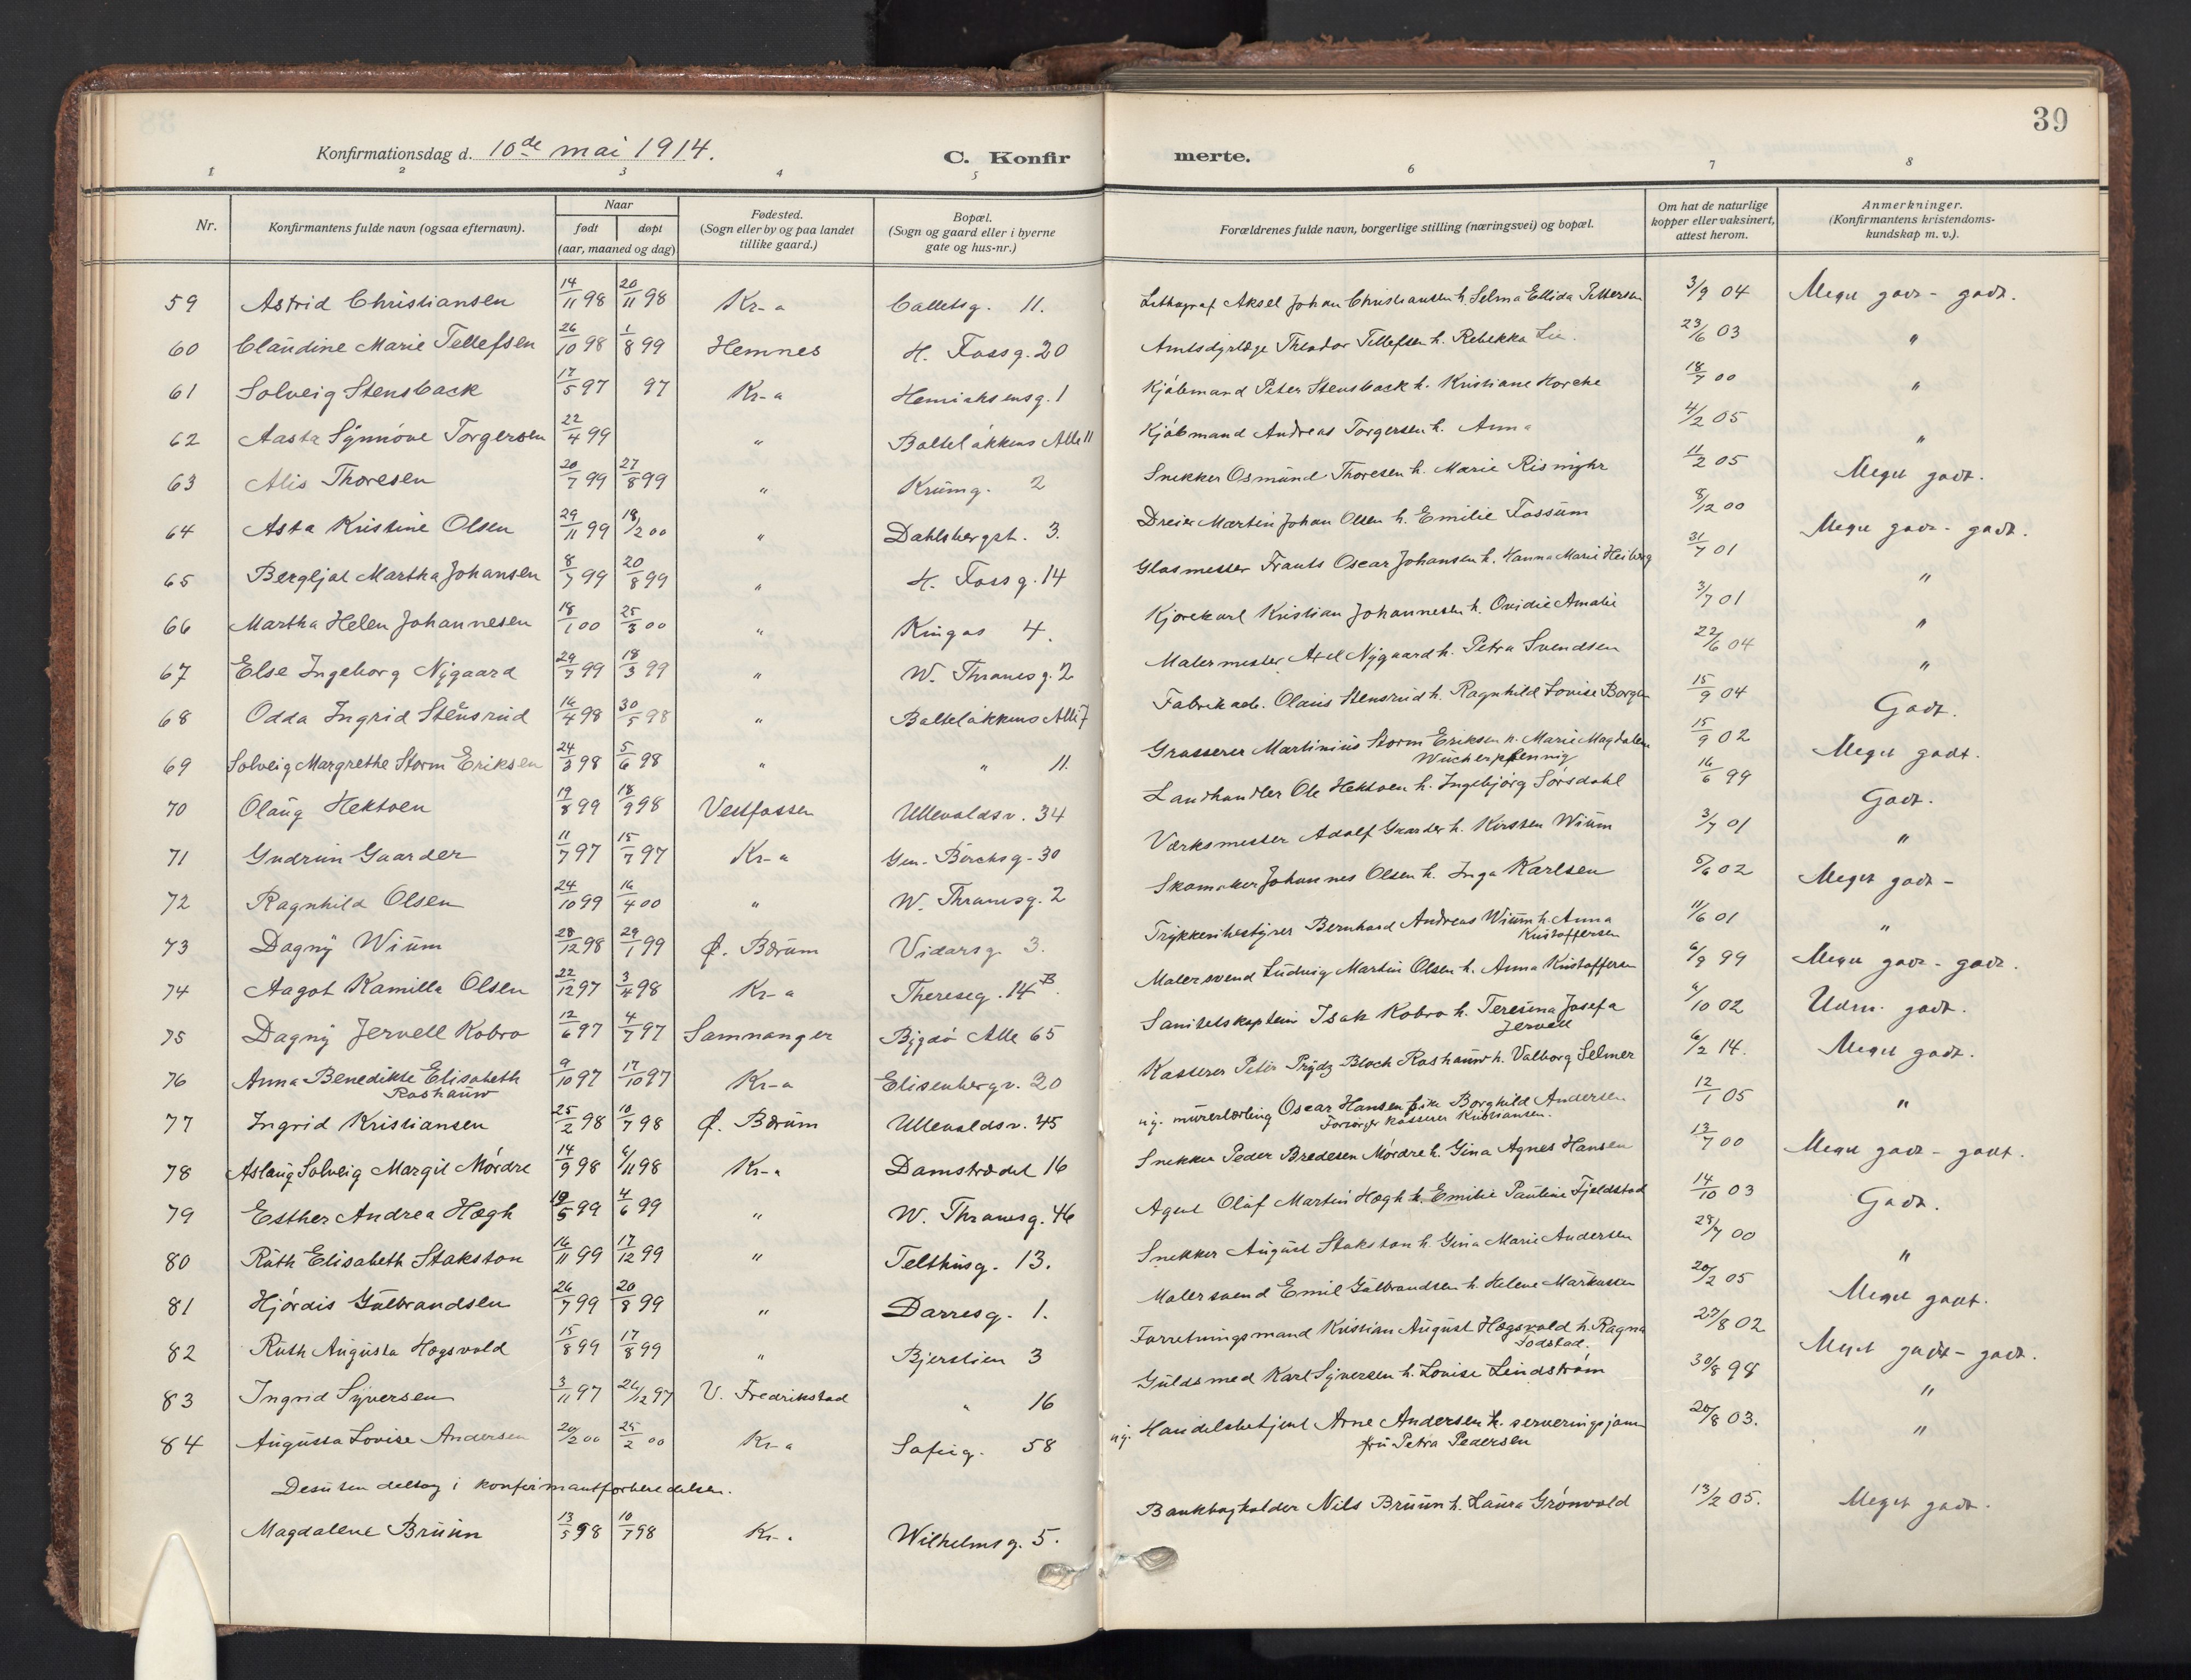 39
Konfirmationsdag d. 10de mai 1914.
C. Konfirmerte.
1 2 3 4 5 6 7 8
Nr.
Konfirmantens fulde navn (ogsaa efternavn).
Naar
født døpt
(aar, maaned og dag)
Fødested.
(Sogn eller by og paa landet
tillike gaard.)
Bopæl.
(Sogn og gaard eller i byerne
gate og hus-nr.)
Forældrenes fulde navn, borgerlige stilling (næringsvei) og bopæl.
Om hat de naturlige
kopper eller vaksinert,
attest herom.
Anmerkninger.
(Konfirmantens kristendoms-
kundskap m. v.).
59 Astrid Christiansen 14/11 98 20/11 98 Kr-a Calletsg. 11. Lithograf Aksel Johan Christiansen h. Selma Ellida Pettersen 3/9 04 Meget godt - godt.
60 Claudine Marie Tellefsen 26/10 98 1/8 99 Hemnes H. Fossg. 20 Amtsdyrlæge Theodor Tellefsen h. Rebekka Lie. 23/6 03 "
61 Solveig Stensback 17/5 97 97 Kr-a Henrichsensg. 1 Kjøbmand Peter Stensback h. Kristiane Horche 18/7 00 "
62 Aasta Synnøve Torgersen 22/4 99 " Balteløkkens Alle 11 Kjøbmand Andreas Torgersen h. Anna 4/2 05 "
63 Alis Thoresen 20/7 99 27/8 99 " Krumg. 2 Snekker Osmund Thoresen h. Marie 11/2 05 Meget godt.
64 Asta Kristine Olsen 29/11 99 18/2 00 " Dahlsbergst. 3. Dreier Martin Johan Olsen h. Emilie Fossum 8/12 00 Meget godt - godt.
65 Bergljot Martha Johansen 8/7 99 20/8 99 " H. Fossg. 14 Glasmester Frants Oscar Johansen h. Hanna Marie Heiberg 31/7 01 "
66 Martha Helen Johannesen 18/1 00 25/3 00 " Ringgs 4. Kjørekarl Kristian Johannesen h. Ovidie Amalie 3/7 01 "
67 Else Ingeborg Nygaard 29/7 99 18/3 99 " W. Thranesg. 2 Malermester Axel Nygaard h. Petra Svendsen 22/6 04 "
68 Odda Ingrid Stensrud 16/4 98 30/5 98 " Balteløkkens Alle 7 Fabrikarb. Olaus Stensrud h. Ragnhild Lovise Borgen 15/9 04 Godt.
69 Solveig Margrethe Storm Eriksen 24/3 98 5/6 98 " " 11. Grosserer Martinius Storm Eriksen h. Marie Magdalene
Wücherpfennig 15/9 02 Meget godt.
70 Olaug Hektoen 19/8 99 18/9 98 Vestfossen Ullevoldsv. 34 Landhandler Ole Hektoen h. Ingebjørg Sørsdahl 16/6 99 Godt.
71 Gudrun Gaarder 11/7 97 15/7 97 Kr-a Gen. Birchsg. 30 Værksmester Adolf Gaarder h. Kirsten Wium 3/7 01 "
72 Ragnhild Olsen 24/10 99 16/4 00 " W. Thranesg. 2 Skomaker Johannes Olsen h. Inga Karlsen 5/6 02 Meget godt -
73 Dagny Wium 28/12 98 29/1 99 Ø. Bærum Vidarsg 3. Trykkeribestyrer Bernhard Andreas Wium h. Anna
Kristoffersen 11/6 01 "
74 Aagot Kamilla Olsen 22/12 97 3/4 98 Kr-a Thereseg. 14 B. Malersvend Ludvig Martin Olsen h. Anna Kristoffersen 6/9 99 Meget godt - godt.
75 Dagny Jervell Kobro 12/6 97 4/7 97 Samnanger Bygdø Alle 65 Sanitetskaptein Isak Kobro h. Teresina Josefa
Jervell 4/10 02 Udm. godt.
76 Anna Benedikte Elisabeth
Roshauw 9/10 97 17/10 97 Kr-a Elisenbergv. 20 Kasserer Peter Prydz Bloch Roshauw h. Valborg Selmer 6/2 14. Meget godt.
77 Ingrid Kristiansen 25/2 98 10/7 98 Ø. Bærum Ullevoldsv. 45 ug. murerlærling Oscar Hansen pike Borghild Andersen
Forsørger kasserer Kristiansen. 12/1 05 "
78 Aslaug Solveig Margit Mørdre 14/9 98 6/11 98 Kr-a Damstrædet 16 Snekker Peder Bredesen Mørdre h. Gina Agnes Hansen 13/7 00 Meget godt - godt.
79 Esther Andrea Høgh 19/5 99 4/6 99 " W. Thranesg. 46 Agent Olaf Martin Høgh h. Emilie Pauline Fjeldstad 14/10 03 Godt.
80 Ruth Elisabeth Stakston 16/11 99 17/12 99 " Telthusg. 13. Snekker August Stakston h. Gina Marie Andersen 28/7 00 "
81 Hjørdis Gulbrandsen 26/7 99 20/8 99 " Darresg. 1. Malersvend Emil Gulbrandsen h. Helene Markussen 20/2 05 Meget godt.
82 Ruth Augusta Hogsvold 15/8 99 17/8 99 " Bjerstien 3 Forretningsmand Kristian August Hogsvold h. Ragna
Fodstad. 27/8 02 Meget godt - godt.
83 Ingrid Syversen 3/11 97 26/12 97 V. Fredrikstad " 16 Guldsmed Karl Syversen h. Lovise Lindstrøm 30/8 98 "
84 Augusta Lovise Andersen 20/2 00 25/2 00 Kr-a Sofieg. 58 ug. Handelsbetjent Arne Andersen h. serveringsjom-
fru Petra Pedersen 20/8 03. "
Desuten deltog i konfirmantforberedelsen.
Magdalene Bruun 13/5 98 10/7 98 Kr-. Wilhelmsg. 5. Bankbogholder Nils Bruun h. Laura Grønvold 13/2 05. Meget godt.